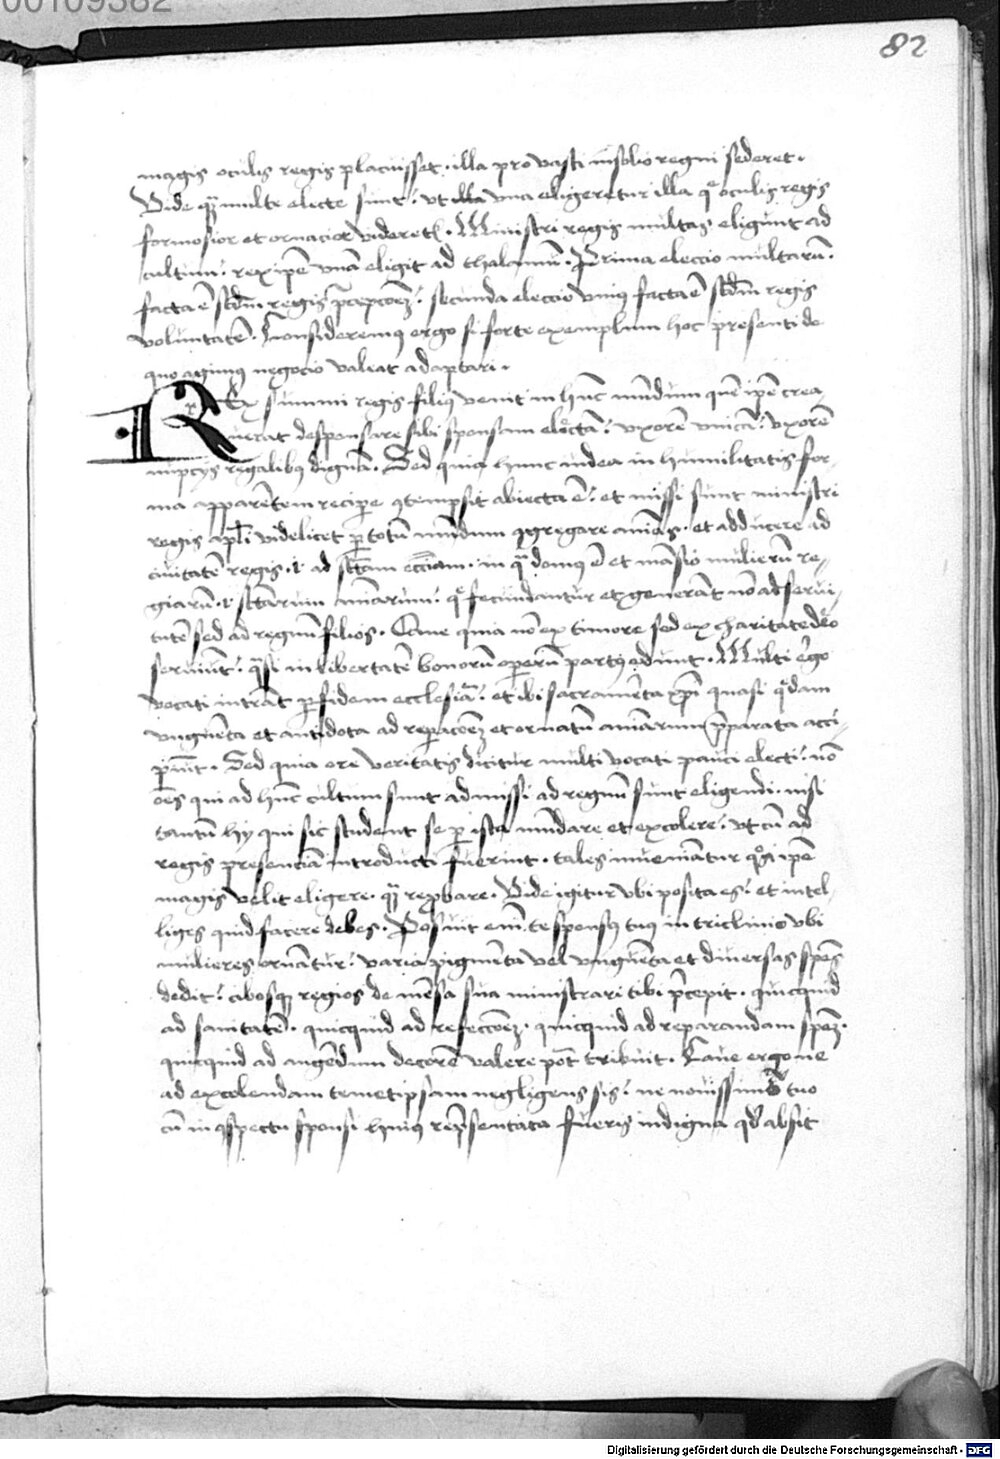 00109382
82
magis oculis regis placuisset . illa pro vasti in solio regni sederet .
Vide qm̄ multe electe sunt : ut illa una eligeretur illa q̄ oculis regis
formosior et ornacior videret̄ . Ministri regis multas eligunt ad
cultum : rex ip̄e unā eligit ad thalamum . Prima eleccio multarū .
facta ē scd̄m regis p̄cepcoēz : secunda eleccio unius facta ē scd̄m regis
voluntatē . Consideremus ergo si forte exemplum hoc presenti de
quo agimus negocio valeat adaptari .
REx summi regis filius venit in hūc mūdum quē ip̄e crea
verat desponsare sibi sponsam elc̄tā : uxorē unicā : uxorē
nupcijs regalibus dignā . Sed quia hunc iudea in humilitatis for-
ma apparētem recipere 9tempsit abiecta ē : et missi sunt ministri
regis apl̄i videlicet p totū mūdum 9gregare aīas . et adducere ad
civitatē regis . i . ad sc̄tam ecc̄iam . in q̄ domus ē et māsio mulierū re-
giarū . i . sc̄tarum aīarum : q̄ fecundantur et generāt nō ad servi-
tutē sed ad regnū filios . Sane quia nō ex timore sed ex charitate deo
serviūt : q̄si in libertatē bonorū operū partus edunt . Multi ergo
vocati intrāt p fidem ecclesiā : et ibi sacramēta xp̄i quasi q̄dam
unguēta et antidota ad repacoēz et ornatū aīarum p̄parata acci-
piūt . Sed quia ore veritatis dicitur multi vocati pauci electi : nō
oēs qui ad hūc cultum sunt admissi ad regnū sunt eligendi . nisi
tantū hij qui sic student se p ista mūdare et excolere : ut cū ad
regis presenciā introducti fuerint . tales inveniātur q̄s ip̄e
magis velit eligere . q̄ȝ repbare . Vide igitur ubi posita es : et intel-
liges quid facere debes . Posuit enī te sponsus tuus in triclinio ubi
mulieres ornātur : varia pigmēta vel unguēta et diversas spēs
dedit : cibosqȝ regios de mēsa sua ministrari tibi p̄cepit . quicquid
ad sanitatē . quicquid ad refeccoēz . quicquid ad reparandam spēz .
quicquid ad augēdum decorē valere pōt tribuit . Cave ergo ne
ad excolendam temetipsam negligens sis : ne novissimo tuo
cū in 9spectu sponsi huius rep̄sentata fueris indigna qd̄ absit
Digitalisierung gefördert durch die Deutsche Forschungsgemeinschaft - DFG